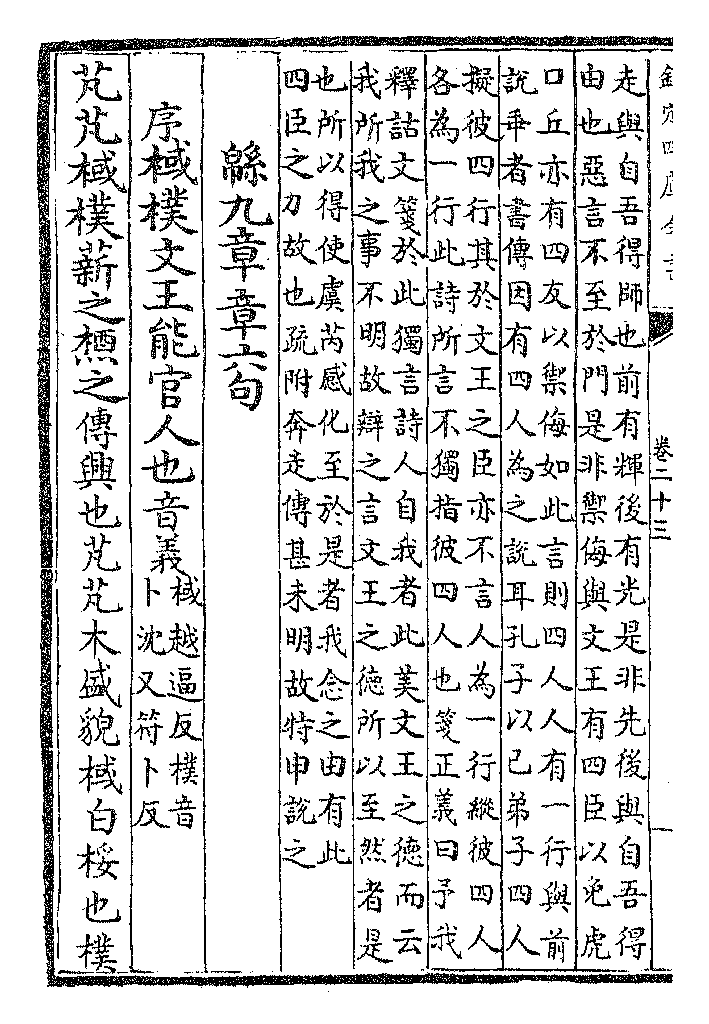 欽定四庫全書
卷二十三
走與自吾得師也前有輝後有光是非先後與自吾得
由也惡言不至於門是非禦侮與文王有四臣以免虎
口丘亦有四友以禦侮如此言則四人人有一行與前
說乖者書傳因有四人為之說耳孔子以已弟子四人
擬彼四行其於文王之臣亦不言人為一行縱彼四人
各為一行此詩所言不獨指彼四人也箋正義曰予我
釋詁文箋於此獨言詩人自我者此美文王之德而云
我所我之事不明故辯之言文王之德所以至然者是
也所以得使虞芮感化至於是者我念之由有此
四臣之力故也疏附奔走傳甚未明故特申說之
緜九章章六句
序棫樸文王能官人也音義棫越逼反樸音
卜沈又符卜反
芃芃棫樸薪之槱之傳興也芃芃木盛貌棫白桵也樸